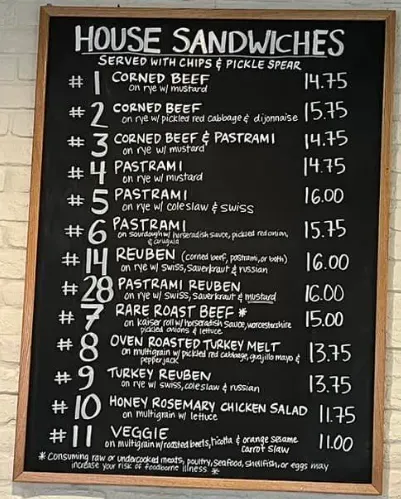 HOUSE SANDWICHES
SERVED WITH CHIPS & PICKLE SPEAR
#1 CORNED BEEF 14.75
on rye w/ mustard
#2 CORNED BEEF 15.75
on rye w/ pickled red cabbage & dijonnaise
#3 CORNED BEEF & PASTRAMI 14.75
on rye w/ mustard
#4 PASTRAMI 14.75
on rye w/ mustard
#5 PASTRAMI 16.00
on rye w/ coleslaw & swiss
#6 PASTRAMI 15.75
on sourdough w/ horseradish sauce, pickled red onion,
& arugula
#14 REUBEN (corned beef, pastrami, or both) 16.00
on rye w/ swiss, sauerkraut & russian
#28 PASTRAMI REUBEN 16.00
on rye w/ swiss, sauerkraut & mustard
#7 RARE ROAST BEEF * 15.00
on kaiser roll w/ horseradish sauce, worcestershire
pickled onions & lettuce
#8 OVEN ROASTED TURKEY MELT 13.75
on multigrain w/ pickled red cabbage, guajillo mayo &
pepper jack
#9 TURKEY REUBEN 13.75
on rye w/ swiss, coleslaw & russian
#10 HONEY ROSEMARY CHICKEN SALAD 11.75
on multigrain w/ lettuce
#11 VEGGIE 11.00
on multigrain w/ roasted beets, ricotta & orange sesame
carrot slaw
* Consuming raw or undercooked meats, poultry, seafood, shellfish, or eggs may
increase your risk of foodborne illness *